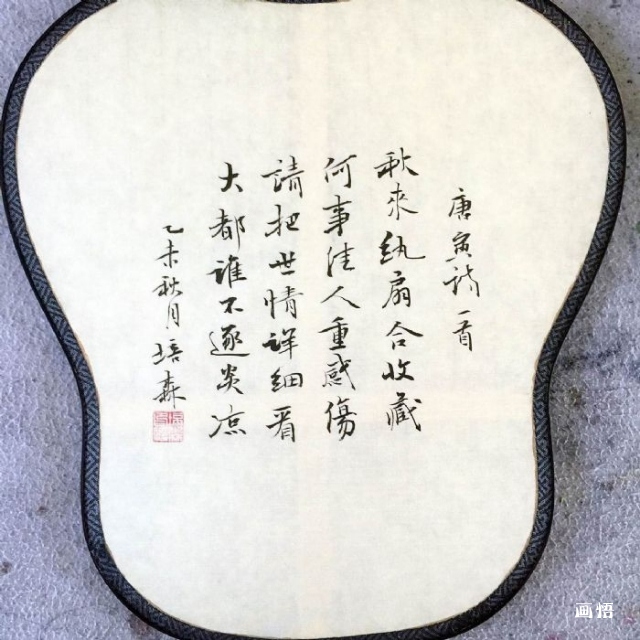 唐寅诗一首
秋来纨扇合收藏
何事佳人重感傷
请把世情详细看
大都谁不逐炎凉
乙未秋月培森
画悟